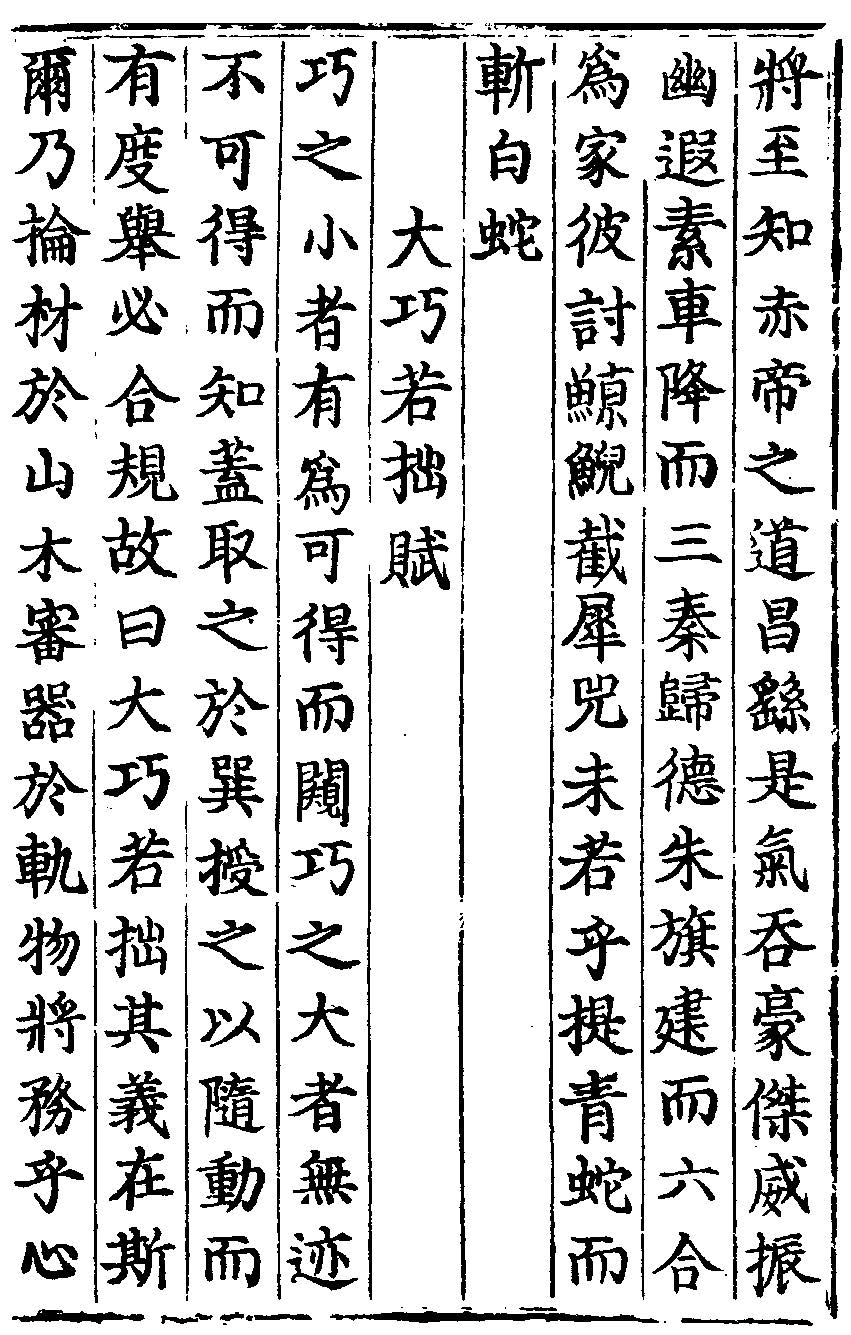 將至知赤帝之道昌繇是氣吞豪傑威振
幽遐素車降而三秦歸德朱旗建而六合
爲家彼討鯨鯢截犀兕未若乎提青蛇而
斬白蛇
大巧若拙賦
巧之小者有爲可得而闚巧之大者無迹
不可得而知蓋取之於巽授之以隨動而
有度舉必合規故曰大巧若拙其義在斯
爾乃掄材於山木審器於軌物將務乎心